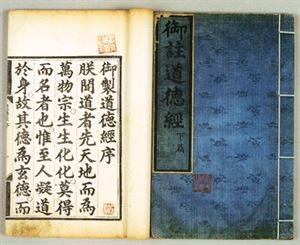 御製道德經序
朕聞道者先天地而為
萬物宗生生化化莫得
而名者也惟至人凝道
於身故其德為玄德而
御註道德經下篇